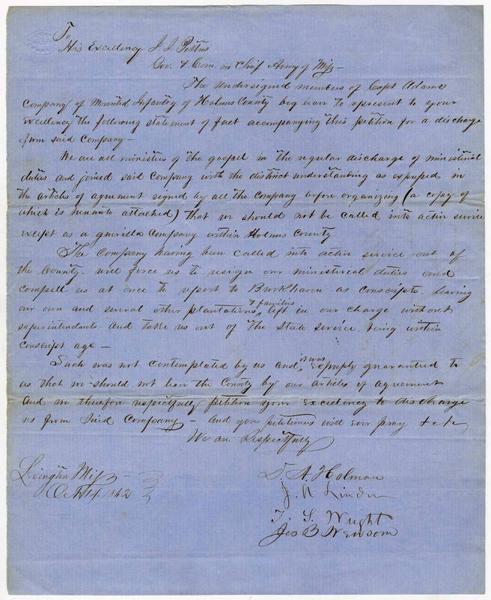 To
His Excellency J. J. Pettus
Gov. & Com in Chief Army of Miss—
The undersigned members of Capt Adams
Company of Mounted Infantry of Holmes County beg leave to represent to your
Excellency the following statement of fact accompanying this petition for a discharge
from said Company—
We are all ministers of the gospel in the regular discharge of ministerial
duties and joined said Company with the distinct understanding as expressed in
the articles of agreement signed by all the Company before organizing (a copy of
which is hereunto attached) that we should not be called into active service
except as a guerilla Company within Holmes County
The Company having been called into active service out of
the County will force us to resign our ministerial duties and
compell us at once to report to Brookhaven as conscripts leaving
our own and several other plantations & families left in our charge without
superintendents and take us out of the State service being within
conscript age—
Such was not contemplated by us and it was expressly guaranteed to
us that we should not leave the County by our articles of agreement
And we therefore respectfully petition your Excellency to discharge
us from said Company— And your petitioners will ever pray &c &c
We are Respectfully
Lexington Miss
Oct 14 1862
J. A. Holman
J. N. Linder
T. S. Wright
Jas B Newsom